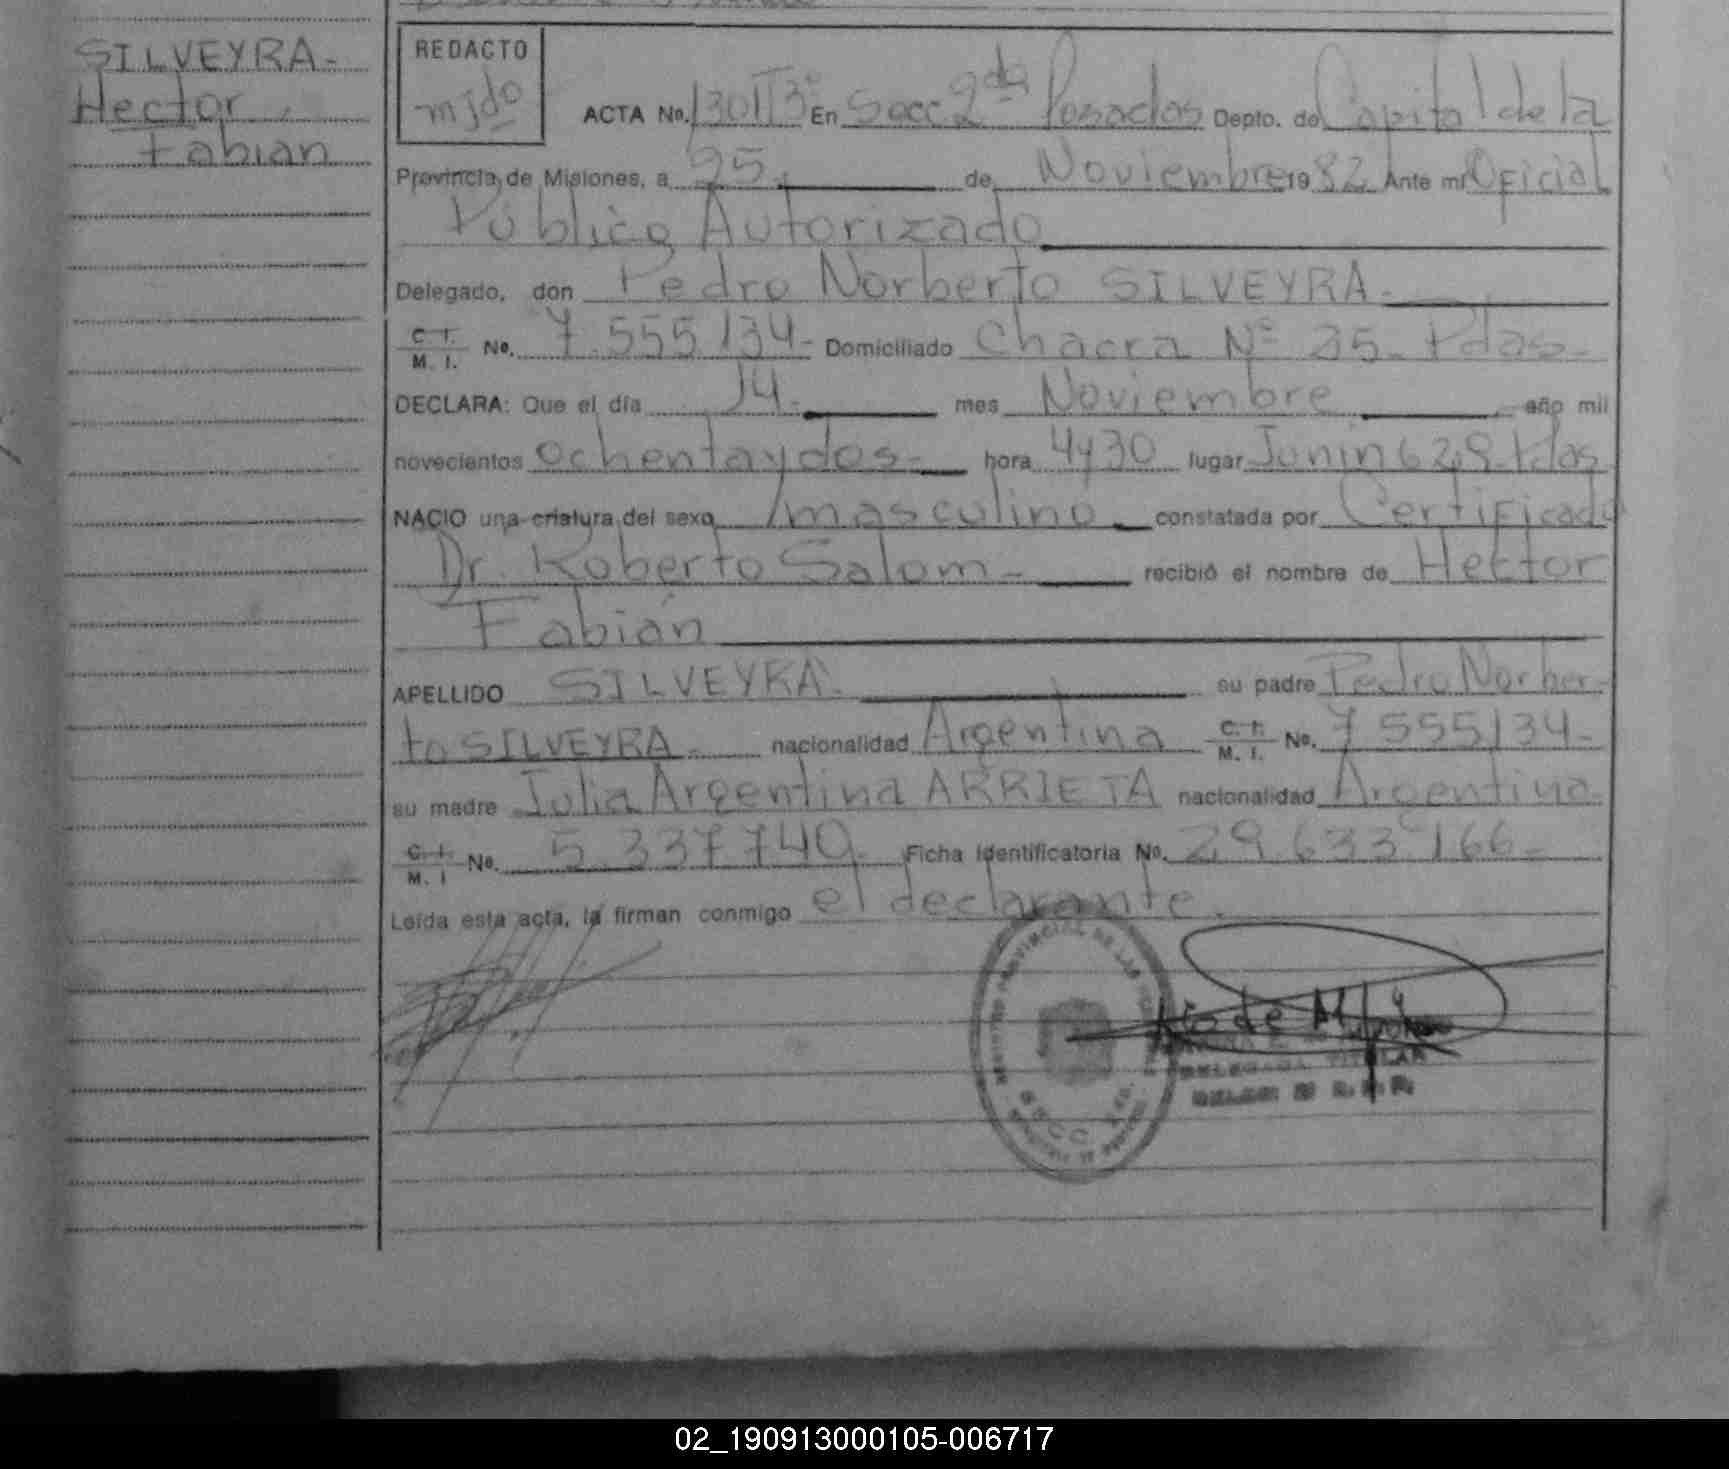 SILVEYRA-
Hector
Fabian
REDACTO
mjdo
ACTA No. 1301T3° En Secc 2da Posadas Depto. de Capital de la
Provincia de Misiones, a 25 de Noviembre 19 82 Ante mi Oficial
Público Autorizado
Delegado, don Pedro Norberto SILVEYRA-
C. I. M. I. No. 7.555134- Domiciliado Chacra N° 25- Pdas-
DECLARA: Que el día 14- mes Noviembre año mil
novecientos ochentaydos- hora 4y30 lugar Junin 629-Pdas
NACIO una criatura del sexo masculino constatada por Certificado
Dr. Roberto Salom- recibió el nombre de Hector
Fabián
APELLIDO SILVEYRA su padre Pedro Norber-
to SILVEYRA- nacionalidad Argentina C. I. M. I. No. 7 555134-
su madre Julia Argentina ARRIETA nacionalidad Argentina-
C. I. M. I No. 5.337740- Ficha Identificatoria No. 29.633.166-
Leída esta acta, la firman conmigo el declarante.
DELEGADA TITULAR
02_190913000105-006717